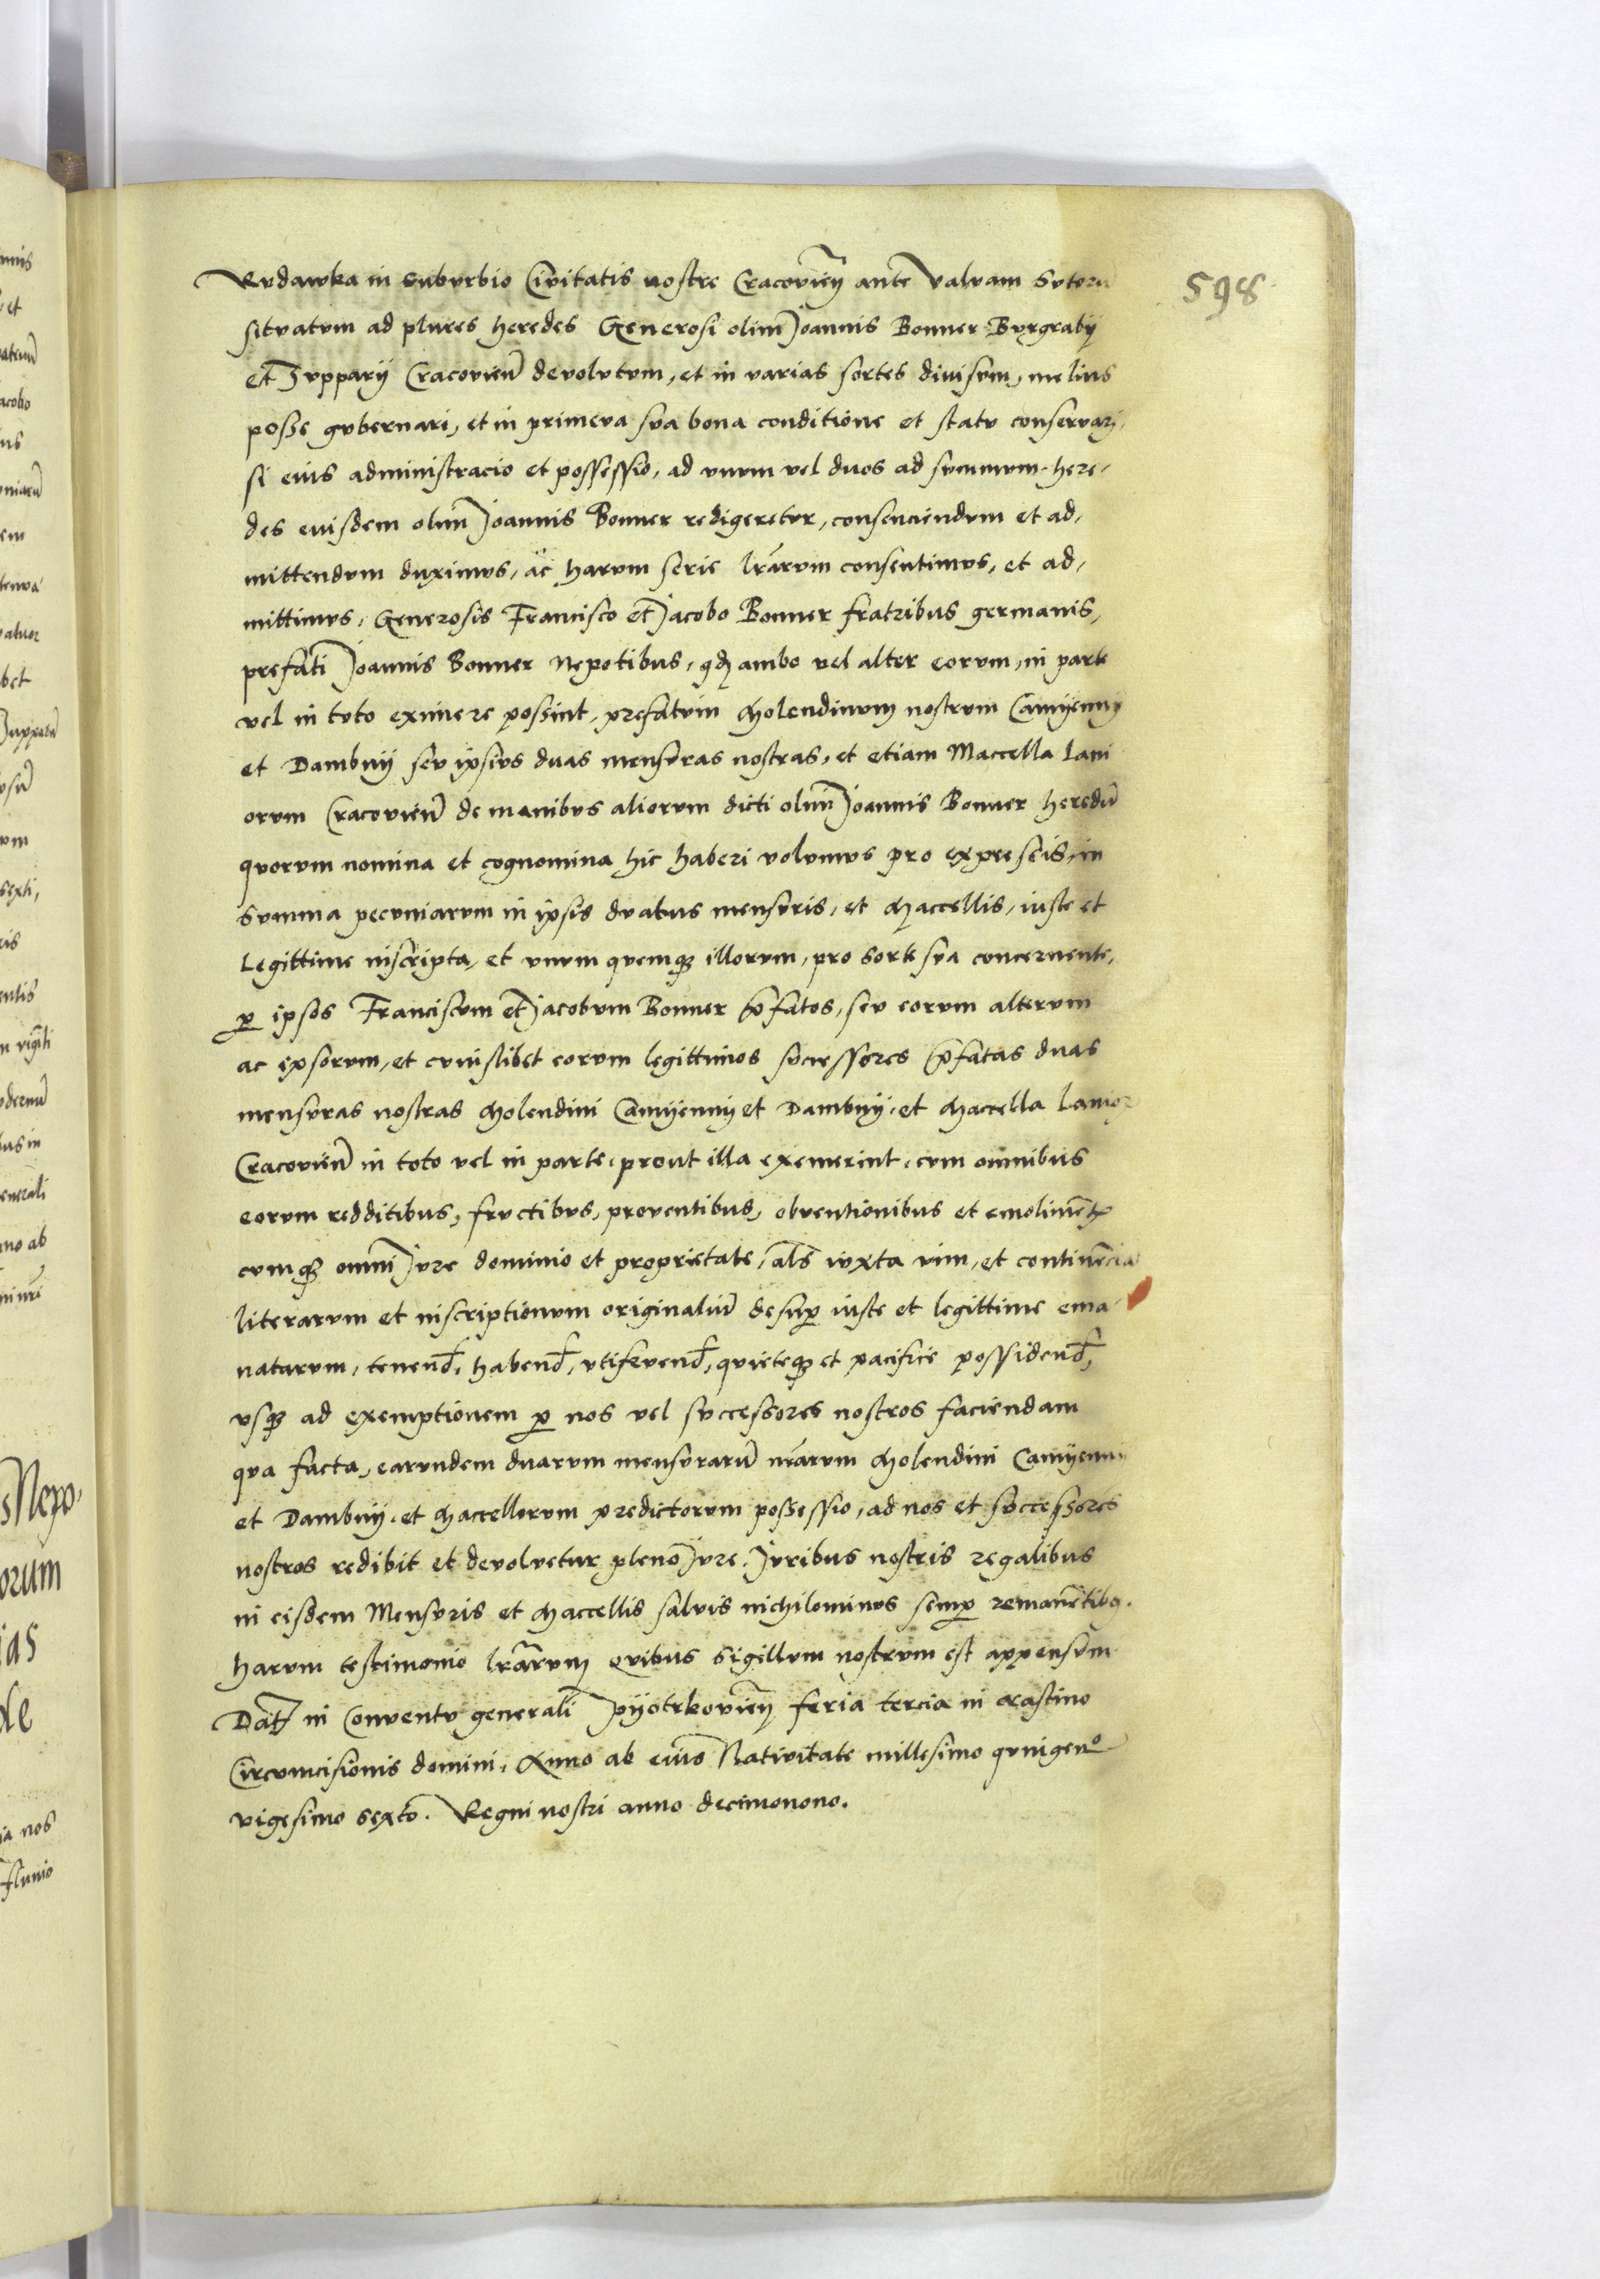 598
Rudawka in suburbio Civitatis nostre Cracovien ante Valvam Sutoru
situatum ad plures heredes Generosi olim Joannis Bonner Burgrabij
et Zupparij Cracovien devolutum, et in varias sortes divisum, melius
posse gubernari, et in primeva sua bona conditione et statu conservari,
si eius administracio et possessio, ad unum vel duos ad summum here,
des eiusdem olim Joannis Bonner redigeretur, consenciendum et ad,
mittendum duximus, ac harum serie lrarum consentimus, et ad,
mittimus, Generosis Francisco et Jacobo Bonner fratribus germanis,
prefati Joannis Bonner Nepotibus, qd ambo vel alter eorum, in parte
vel in toto eximere possint, prefatum Molendinum nostrum Camyenny
et Dambny seu ipsius duas mensuras nostras, et etiam Maccella Lani
orum Cracovien de manibus aliorum dicti olim Joannis Bonner heredu
quorum nomina et cognomina hic haberi volumus pro expressis, in
summa pecuniarum in ipsis duabus mensuris, et Maccellis, iuste et
Legittime inscripta, et unumquemq illorum, pro sorte sua concernente,
p ipsos Franciscum et Jacobum Bonner pfatos, seu eorum alterum
ac ipsorum, et cuiuslibet eorum legittimos successores pfatas duas
mensuras nostras Molendini Camyenny et Dambny, et Maccella Lanior
Cracovien in toto vel in parte, prout illa exemerint, cum omnibus
eorum redditibus, fructibus, proventibus, obventionibus et emolimet
cumq omni Jure dominio et proprietate, als iuxta vim, et continecia
literarum et inscriptionum originaliu desup iuste et legittime ema
natarum, tenend, habend, utifruend, quieteq et pacifice possidend,
usq ad exemptionem p nos vel successores nostros faciendam
qua facta, earundem duarum mensuraru nrarum Molendini Camyenny
et Dambny, et Maccellorum predictorum possessio, ad nos et successores
nostros redibit et devolvetur pleno Jure. Juribus nostris regalibus
in eisdem Mensuris et Maccellis salvis nichilominus semp remanetibus.
Harum testimonio lrarum quibus Sigillum nostrum est appensum
Dat in Conventu generali Pyotrkovien feria tercia in crastino
Circumcisionis domini, Anno ab eius Nativitate millesimo quingeno
vigesimo sexto. Regni nostri anno decimonono.